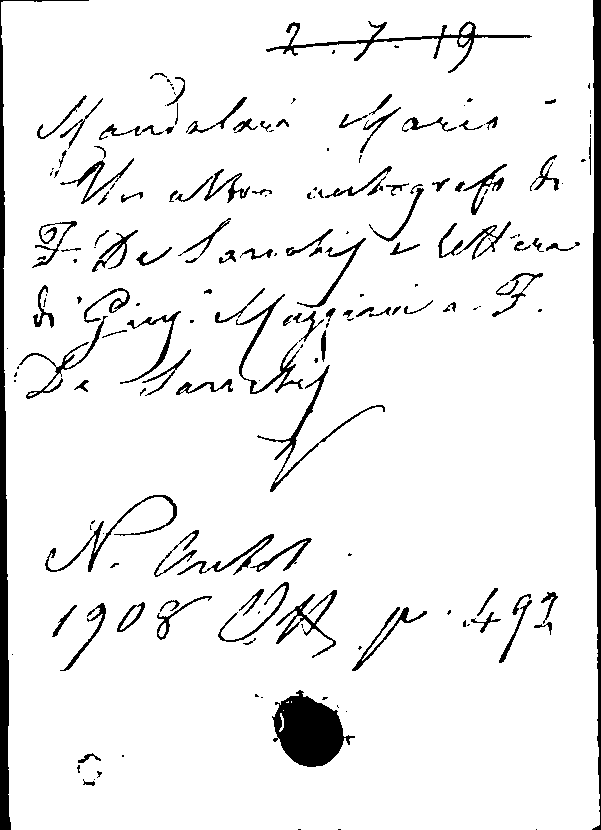 2.7.19
Mandalari Mario
Un altro autografo di
F. De Sanctis e lettera
di Gius. Mazzini a F.
De Sanctis
N. Antol.
1908 Ott. p. 492